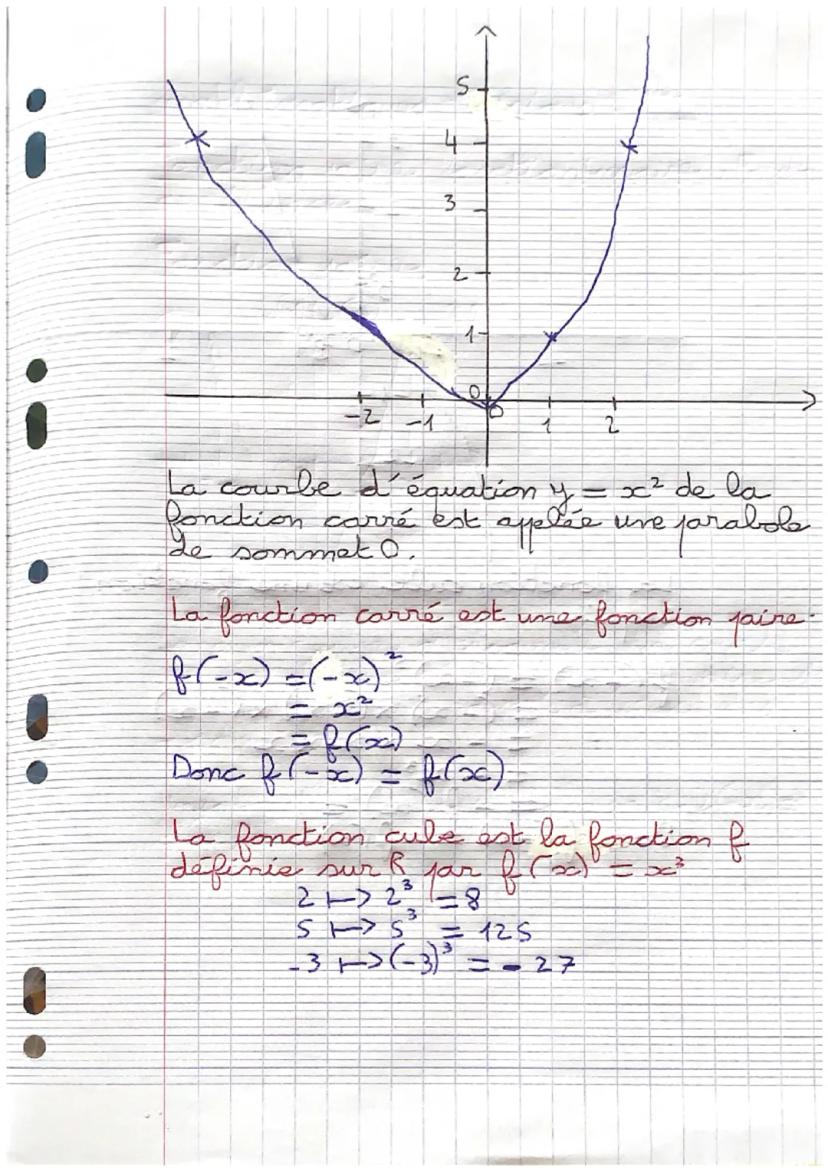 5
4
3
2
1
0
-2 -1 0 1 2
La courbe d'équation y = x² de la
fonction carré est appelée une parabole
de sommet O.
La fonction carré est une fonction paire.
f(-x) = (-x)²
= x²
= f(x)
Donc f(-x) = f(x)
La fonction cube est la fonction f
définie sur R par f(x) = x³
2 ↦ 2³ = 8
5 ↦ 5³ = 125
-3 ↦ (-3)³ = - 27